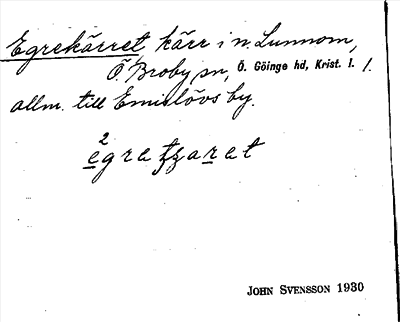 Egrekärret, kärr i n. Lunnom,
Ö. Broby sn, Ö. Göinge hd, Krist. l. /.
allm. till Emislövs by.
JOHN SVENSSON 1930